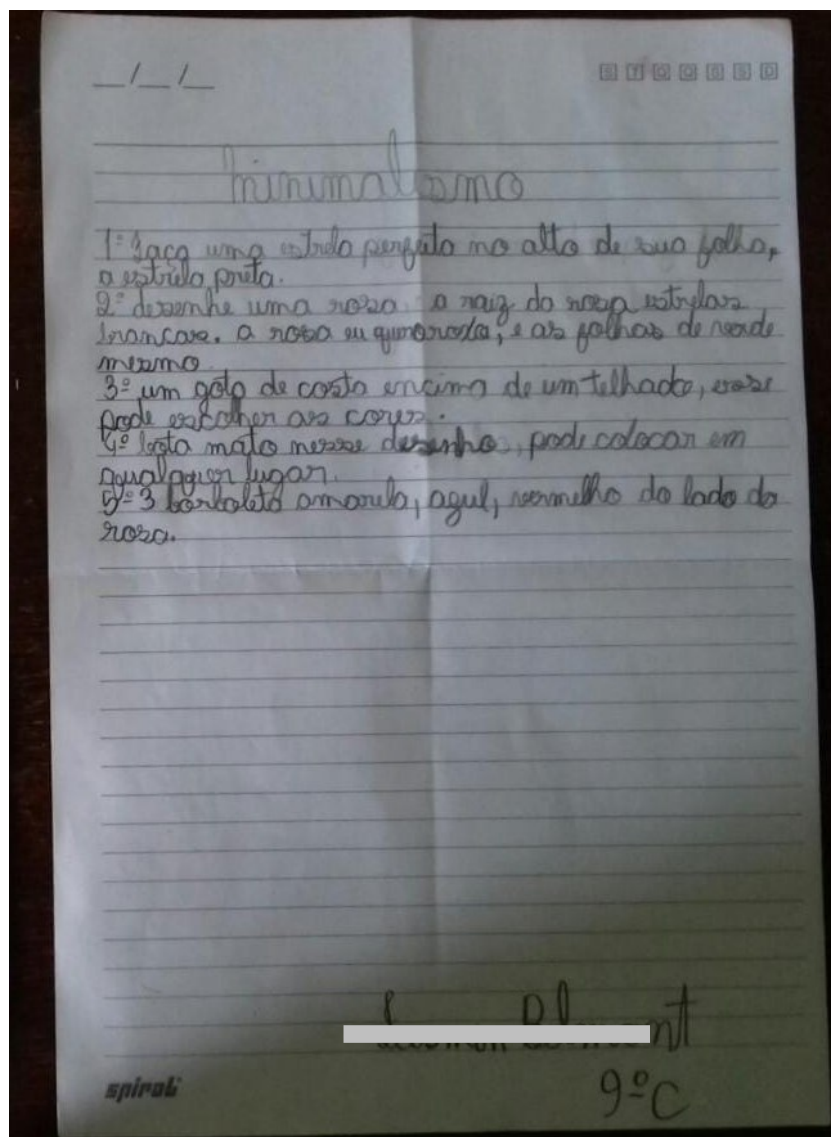 __/__/__
S T Q Q S S D
Minimalismo
1º Faça uma estrela perfeita no alto de sua folha,
a estrela preta.
2º desenhe uma rosa. a raiz da rosa estrelas
brancas. a rosa eu quero roxa, e as folhas de verde
mesmo.
3º um gato de costa encima de um telhado, esse
pode escolher as cores.
4º bota mato nesse desenho, pode colocar em
qualquer lugar.
5º 3 borboleta amarela, azul, vermelho do lado da
rosa.
spiral
9ºC